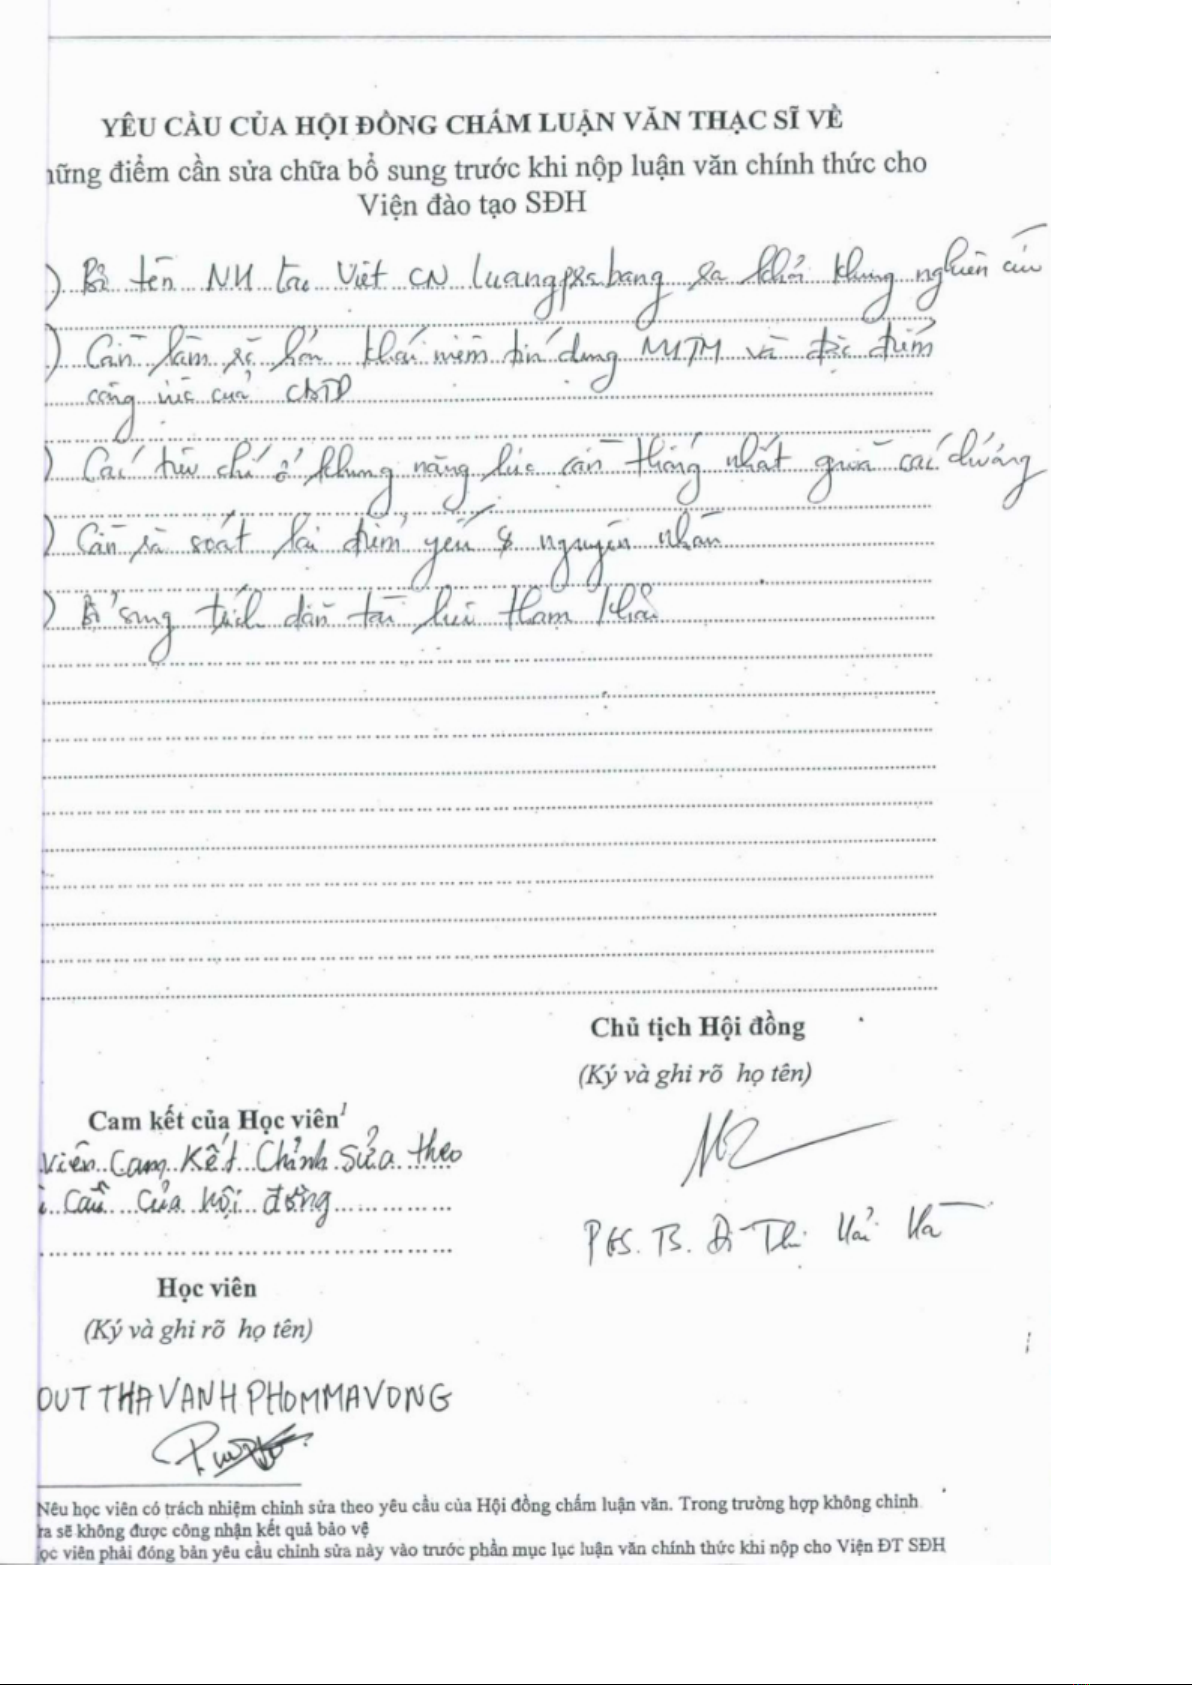 YÊU CẦU CỦA HỘI ĐỒNG CHẤM LUẬN VĂN THẠC SĨ VỀ
hững điểm cần sửa chữa bổ sung trước khi nộp luận văn chính thức cho
Viện đào tạo SĐH
) Bỏ tên NH Lào Việt CN Luangprabang ra khỏi khung nghiên cứu
) Cần làm rõ hơn khái niệm tín dụng NHTM và đặc điểm
công việc của CBTD
) Các tiêu chí ở khung năng lực cần thống nhất giữa các chương
) Cần rà soát lại điểm yếu & nguyên nhân
) Bổ sung trích dẫn tài liệu tham khảo
Chủ tịch Hội đồng
(Ký và ghi rõ họ tên)
Cam kết của Học viên1
viên cam kết chỉnh sửa theo
cầu của hội đồng
PGS. TS. Thị Hải Hà
Học viên
(Ký và ghi rõ họ tên)
OUTTHAVANH PHOMMAVONG
Nêu học viên có trách nhiệm chỉnh sửa theo yêu cầu của Hội đồng chấm luận văn. Trong trường hợp không chỉnh
ra sẽ không được công nhận kết quả bảo vệ
ọc viên phải đóng bản yêu cầu chỉnh sửa này vào trước phần mục lục luận văn chính thức khi nộp cho Viện ĐT SĐH